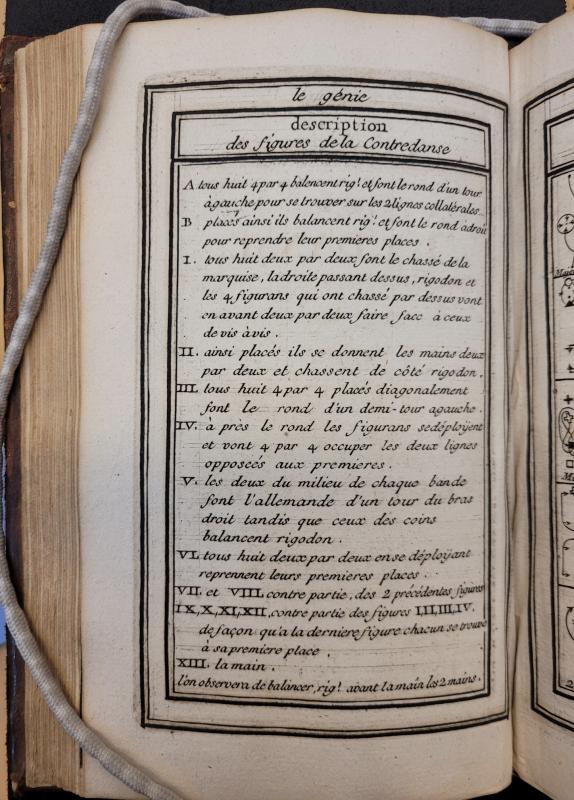 le génie
description
des figures de la Contredanse
A tous huit 4 par 4 balencent rig! et font le rond d'un tour
àgauche pour se trouver sur les 2 lignes collatérales
B placés ainsi ils balancent rig! et font le rond àdroit
pour reprendre leur premieres places.
I. tous huit deux par deux font le chassé de la
marquise, la droite passant dessus, rigodon et
les 4 figurans qui ont chassé par dessus vont
en avant deux par deux faire face à ceux
de vis àvis.
II. ainsi placés ils se donnent les mains deux
par deux et chassent de côté rigodon.
III. tous huit 4 par 4 placés diagonalement
font le rond d'un demi-tour agauche.
IV. à près le rond les figurans sedéployent
et vont 4 par 4 occuper les deux lignes
opposeés aux premieres.
V. les deux du milieu de chaque bande
font l'allemande d'un tour du bras
droit tandis que ceux des coins
balancent rigodon.
VI. tous huit deux par deux en se déployant
reprennent leurs premieres places.
VII. et VIII contre partie, des 2 précédentes figures
IX, X, XI, XII, contre partie des figures I, II, III, IV.
de façon qu'a la derniere figure chacun se trouve
à sa premiere place.
XIII. la main.
l'on observera de balancer, rig! avant la main les 2 mains.